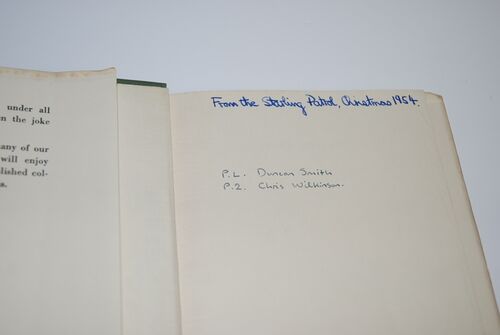 under all
n the joke
any of our
will enjoy
lished col-
s.
From the Starling Patrol, Christmas 1954.
P.L. Duncan Smith
P.2. Chris Wilkinson.